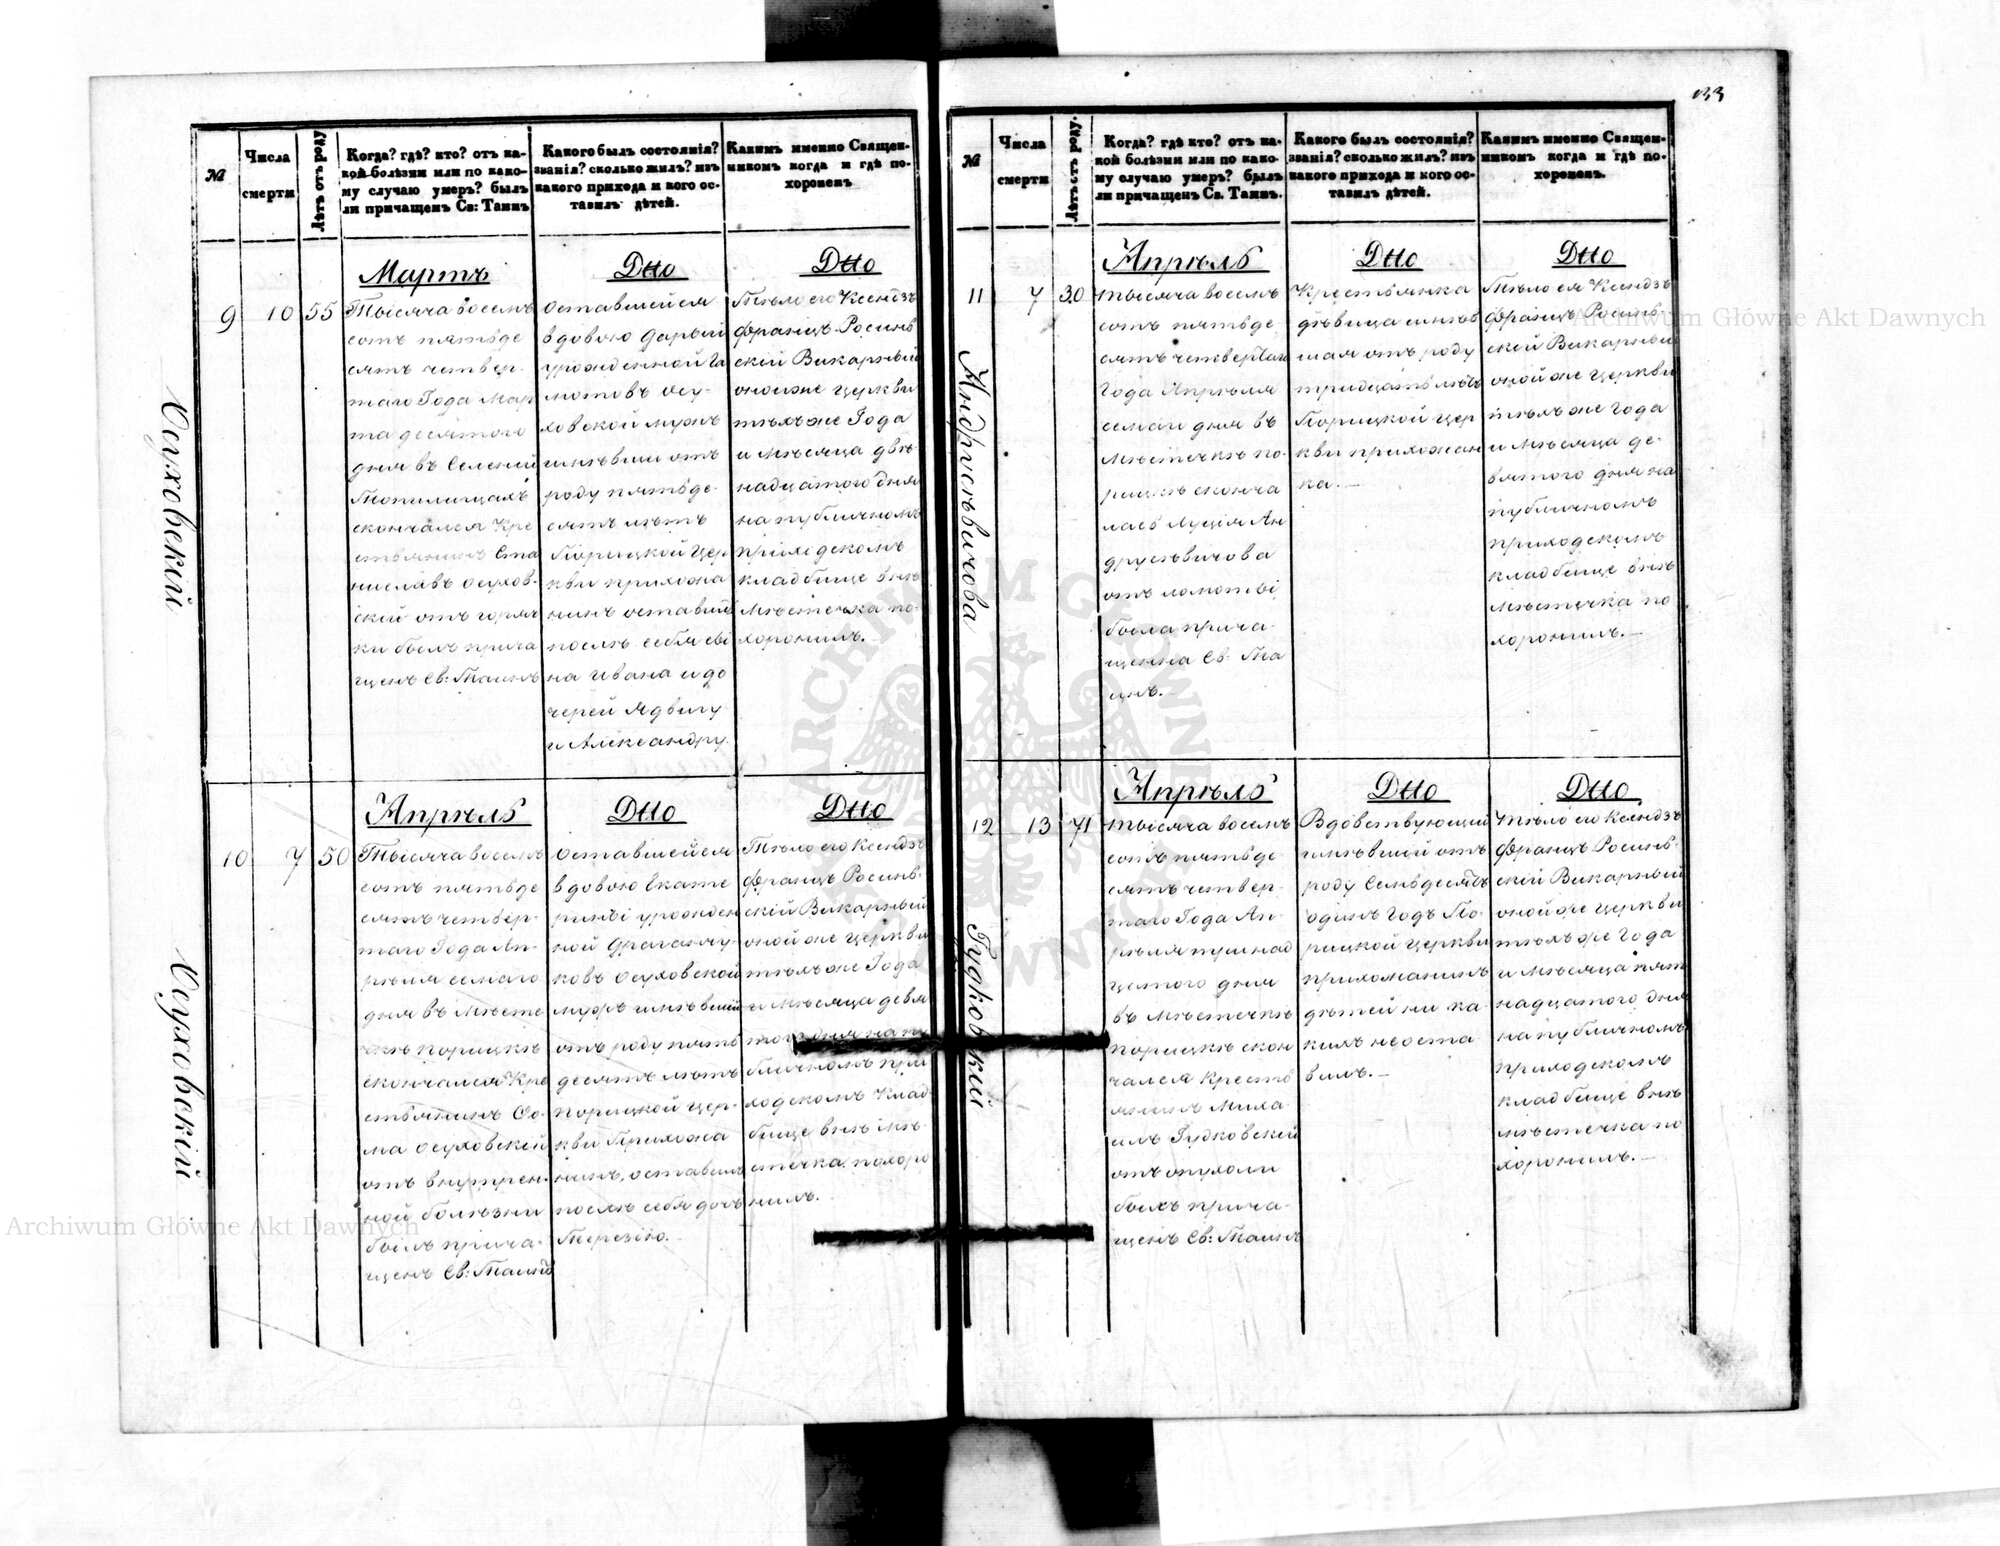 133
№
Числа
смерти
Лѣтъ отъ роду
Когда? гдѣ? кто? отъ ка-
кой болѣзни или по како-
му случаю умеръ? былъ
ли причащенъ Св: Таинъ
Какого былъ состоянія?
званія? сколько жилъ? изъ
какого прихода и кого ос-
тавилъ дѣтей.
Какимъ именно Священ-
никомъ когда и гдѣ по-
хороненъ
Осуховскій
9
10
55
Мартъ
Тысяча восемъ
сотъ пятьде
сятъ четвер-
таго Года Мар
та десятого
дня въ Селеніи
Топилищахъ
скончался Кре
стьянинъ Ста
ниславъ Осухов-
скій отъ горяч
ки былъ прича
щенъ Св: Таинъ
Dtto
Оставшейся
вдовою Дарьи
урожденной
Осу-
ховской мужъ
имѣвши отъ
роду пятьде-
сятъ лѣтъ
Порицкой Цер
кви прихожа
нинъ оставилъ
послѣ себя сы
на Ивана и до
черей Ядвигу
и Александру.
Dtto
Тѣло его Ксендзъ
Францъ Росинь
скій Викарный
оной же церкви
тѣхъ же Года
и Мѣсяца двѣ-
надцатого дня
на публичномъ
приходскомъ
кладбище внѣ
Мѣстечка по-
хоронилъ.—
Осуховскій
10
7
50
Апрѣль
Тысяча восемъ
сотъ пятьде
сятъ четвер-
таго Года Ап-
рѣля семаго
дня въ Мѣсте
чкѣ Порицкѣ
скончался Кре
стьянинъ Фо-
ма Осуховскій
отъ внутрен-
ной болѣзни
былъ прича-
щенъ Св: Таинъ
Dtto
Оставшейся
вдовою Екате
рины урожден
ной
ковъ Осуховской
мужъ имѣвшій
отъ роду пять
десятъ лѣтъ
Порицкой цер-
кви Прихожа
нинъ, оставилъ
послѣ себя дочь
Терезію.
Dtto
Тѣло его Ксендзъ
Францъ Росинь-
скій Викарный
оной же церкви
тѣхъ же Года
и Мѣсяца девя
того дня на пу
бличномъ при
ходскомъ Клад-
бище внѣ Мѣ-
стечка похоро
нилъ.
№
Числа
смерти
Лѣтъ отъ роду.
Когда? гдѣ? кто? отъ ка-
кой болѣзни или по како-
му случаю умеръ? былъ
ли причащенъ Св. Таинъ.
Какого былъ состоянія?
званія? сколько жилъ? изъ
какого прихода и кого ос-
тавилъ дѣтей.
Какимъ именно Священ-
никомъ когда и гдѣ по-
хороненъ.
Андрусѣвичова
11
7
30
Апрѣль
тысяча восемъ
сотъ пятьде
сятъ четвертаго
Года Апрѣля
семаго дня въ
Мѣстечкѣ По-
рицкѣ сконча
лась Луція Ан
друсѣвичова
отъ ломоты
была прича-
щенна Св. Та
инъ.—
Dtto
Крестьянка
дѣвица имѣв
шая отъ роду
тридцать лѣтъ
Порицкой Цер
кви прихожан
ка.—
Dtto
Тѣло ея Ксендзъ
Францъ Росинь
скій Викарный
оной же Церкви
тѣхъ же Года
и Мѣсяца де-
вятого дня на
публичномъ
приходскомъ
кладбище внѣ
Мѣстечка по
хоронилъ.—
Гудковскій
12
13
71
Апрѣль
тысяча восемъ
сотъ пятьде
сятъ четвер-
таго Года Ап-
рѣля тринад
цатого дня
въ Мѣстечкѣ
Порицкѣ скон
чался Кресть
янинъ Миха
илъ Гудковскій
отъ опухоли
былъ прича-
щенъ Св: Таинъ
Dtto
Вдовствующій
имѣвшій отъ
роду Семьдесятъ
одинъ годъ По-
рицкой церкви
прихожанинъ
дѣтей ни ка-
кихъ не оста
вилъ.—
Dtto
Тѣло его Ксендзъ
Францъ Росинь-
скій Викарный
оной же церкви
тѣхъ же Года
и Мѣсяца пят
надцатого дня
на публичномъ
приходскомъ
кладбище внѣ
мѣстечка по
хоронилъ.—
Archiwum Główne Akt Dawnych
Archiwum Główne Akt Dawnych